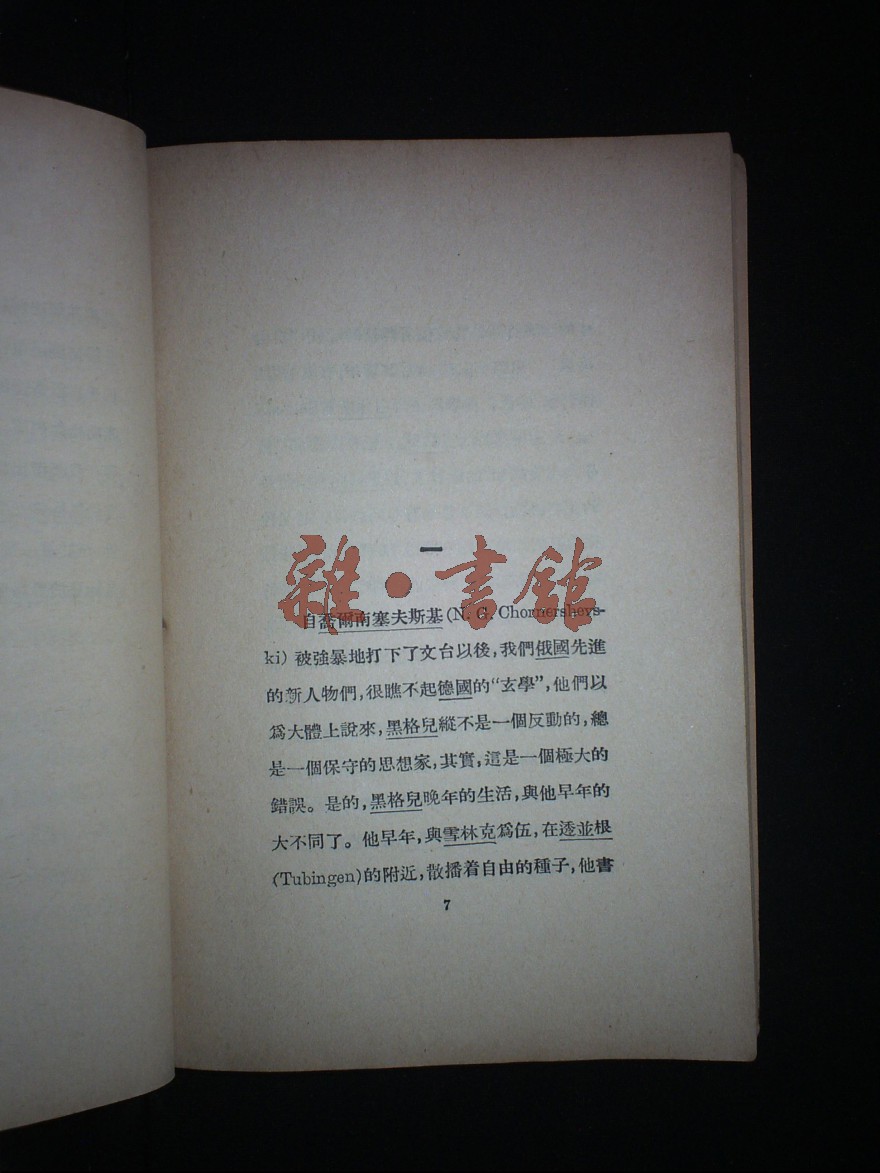 一
雜·書館
自喬爾南塞夫斯基(N. G. Chornershevs-
ki)被強暴地打下了文台以後,我們俄國先進
的新人物們,很瞧不起德國的“玄學”,他們以
爲大體上說來,黑格兒縱不是一個反動的,總
是一個保守的思想家,其實,這是一個極大的
錯誤。是的,黑格兒晚年的生活,與他早年的
大不同了。他早年,與雪林克爲伍,在透並根
(Tubingen)的附近,散播着自由的種子,他書
7